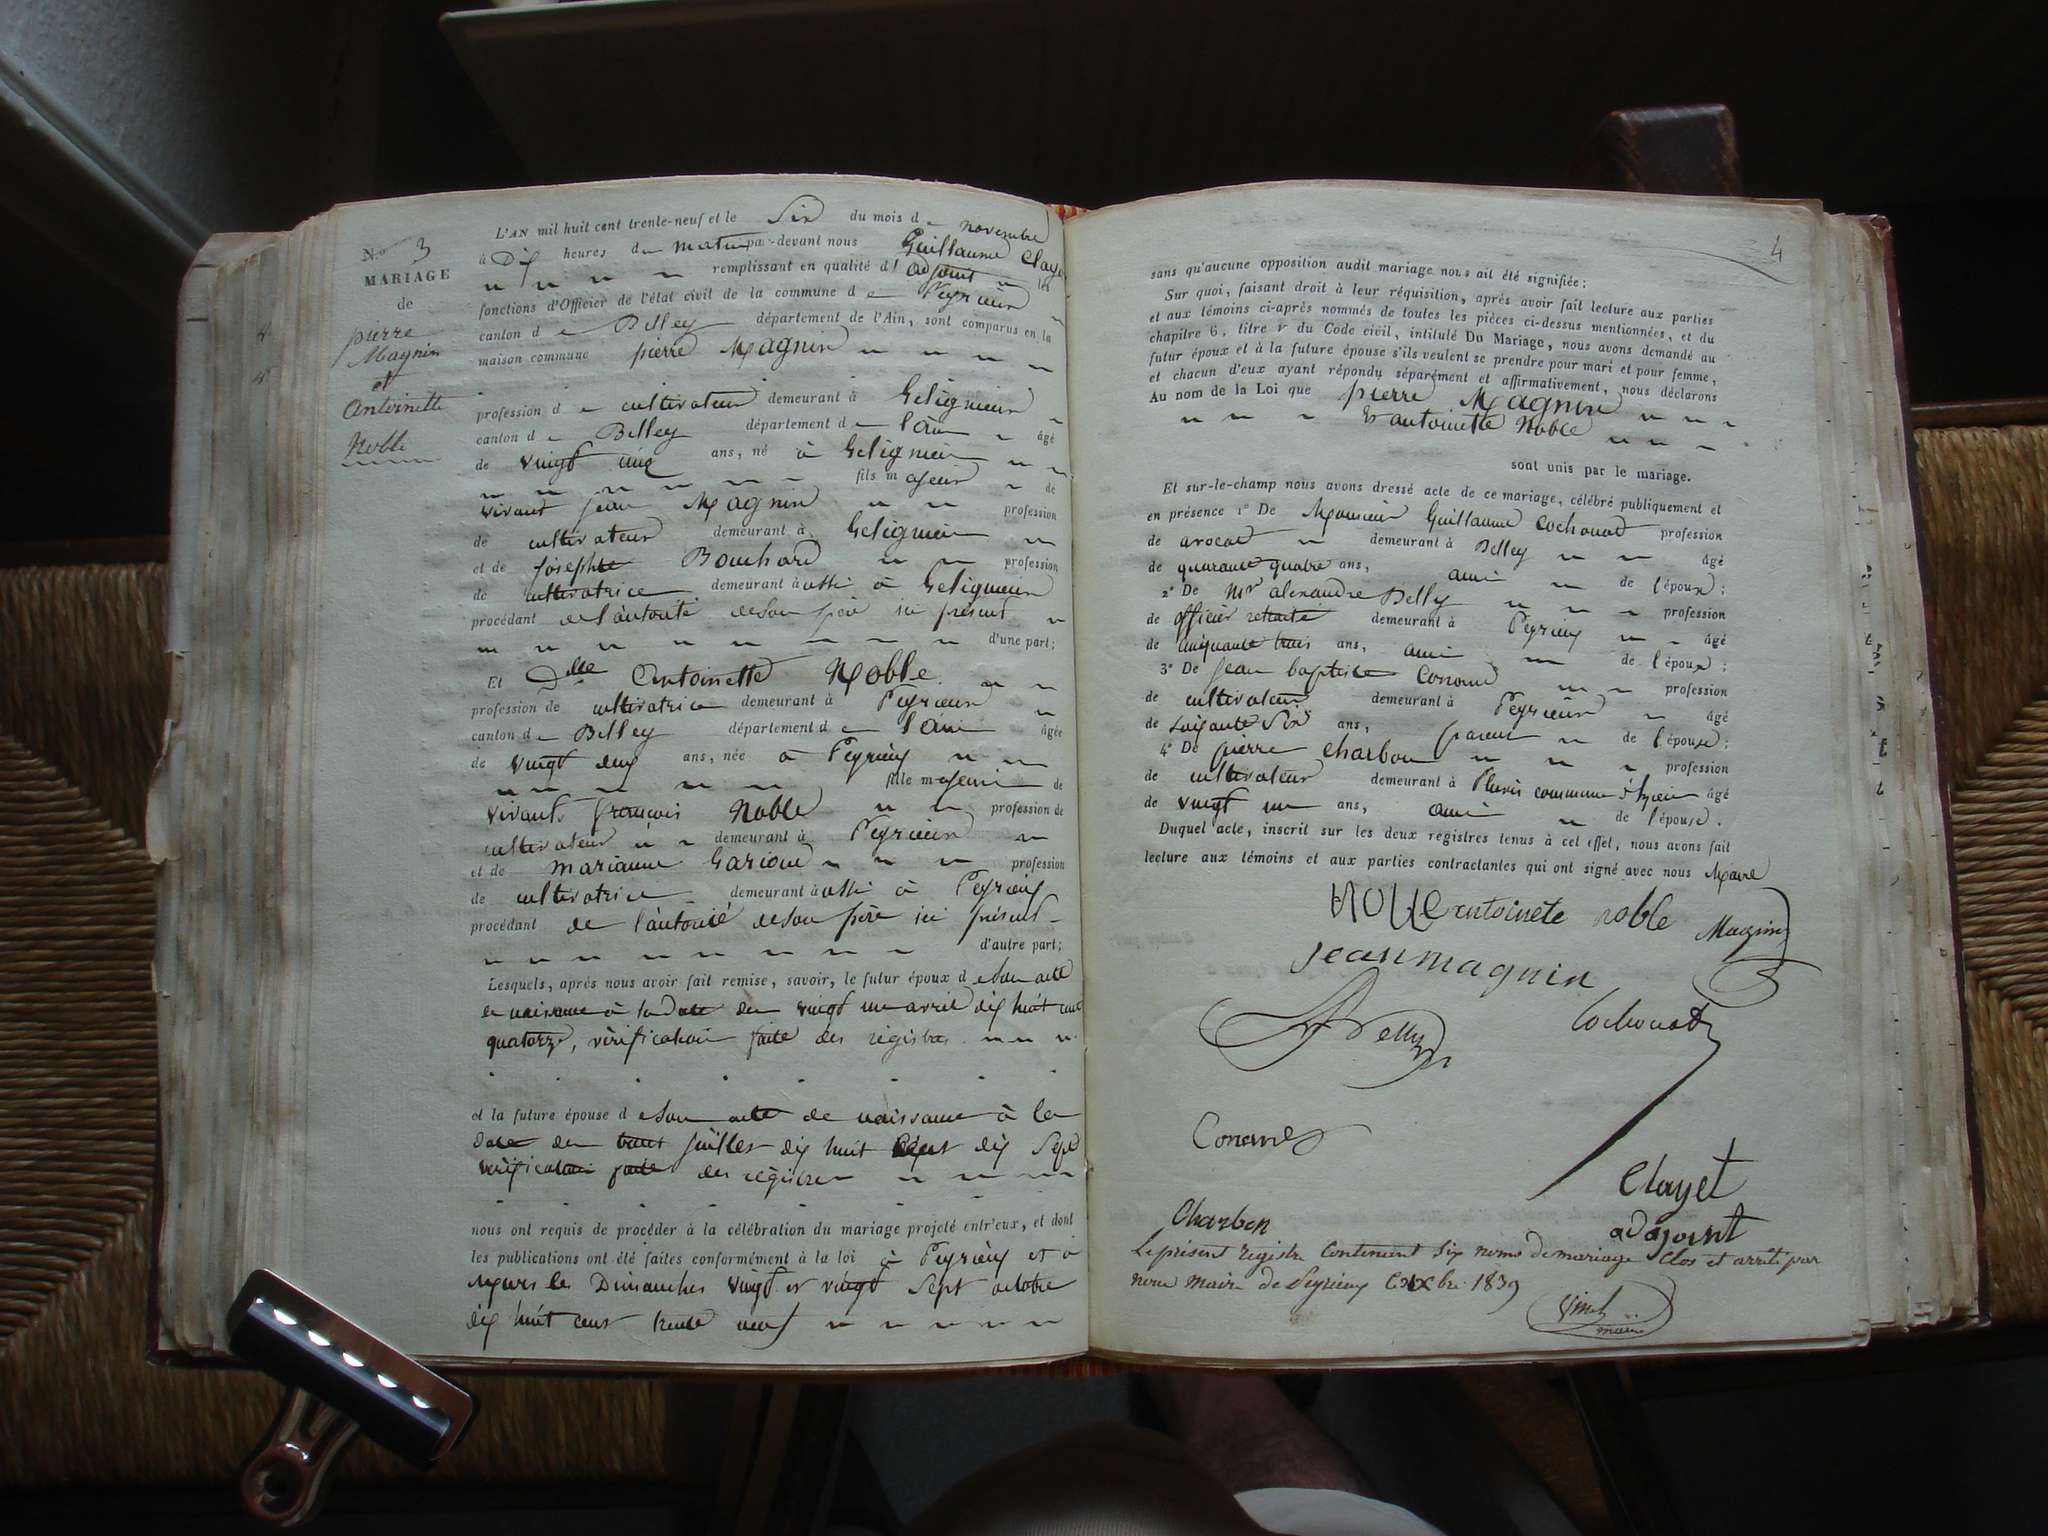 No 3
MARIAGE
de
pierre
Magnin
et
Antoinette
Noble
L'AN mil huit cent trente-neuf et le Six du mois de novembre
à Dix heures du matin par-devant nous Guillaume Clayet
remplissant en qualité d' adjoint les
fonctions d'Officier de l'état civil de la commune de Peyrieu
canton de Belley département de l'Ain, sont comparus en la
maison commune pierre Magnin
profession de cultivateur demeurant à Gelignieu
canton de Belley département de l'ain âgé
de vingt cinq ans, né à Gelignieu
fils majeur de
vivant jean Magnin profession
de cultivateur demeurant à Gelignieu
et de josephte Bouchard profession
de cultivatrice demeurant aussi à Gelignieu
procédant de l'autorité de son père ici présent
d'une part;
Et Dlle Antoinette Noble
profession de cultivatrice demeurant à Peyrieu
canton de Belley département de l'ain âgée
de vingt deux ans, née à Peyrieu
fille majeure de
vivants françois Noble profession de
cultivateur demeurant à Peyrieu
et de marianne profession
de cultivatrice demeurant aussi à Peyrieu
procédant de l'autorité de son père ici présent
d'autre part;
Lesquels, après nous avoir fait remise, savoir, le futur époux de son acte
de naissance à la date du vingt un avril dix huit cent
quatorze, vérification faite des registres
et la future épouse de son acte de naissance à la
date du juillet dix huit cent dix sept
vérification faite des registres
nous ont requis de procéder à la célébration du mariage projeté entr'eux, et dont
les publications ont été faites conformément à la loi à Peyrieu et à
les Dimanches vingt et vingt sept octobre
dix huit cent trente neuf
4
sans qu'aucune opposition audit mariage nous ait été signifiée;
Sur quoi, faisant droit à leur réquisition, après avoir fait lecture aux parties
et aux témoins ci-après nommés de toutes les pièces ci-dessus mentionnées, et du
chapitre 6, titre v du Code civil, intitulé Du Mariage, nous avons demandé au
futur époux et à la future épouse s'ils veulent se prendre pour mari et pour femme,
et chacun d'eux ayant répondu séparément et affirmativement, nous déclarons
Au nom de la Loi que pierre Magnin
Et antoinette Noble
sont unis par le mariage.
Et sur-le-champ nous avons dressé acte de ce mariage, célébré publiquement et
en présence 1º De Monsieur Guillaume Cochonat profession
de avocat demeurant à Belley âgé
de quarante quatre ans, ami de l'époux;
2º De Mr alexandre Belly profession
de officier retraité demeurant à Peyrieu âgé
de cinquante trois ans, ami de l'époux;
3º De jean baptiste Conand profession
de cultivateur demeurant à Peyrieu âgé
de soixante six ans, parent de l'épouse;
4º De pierre charbon profession
de cultivateur demeurant à commune d'izieu âgé
de vingt un ans, ami de l'épouse.
Duquel acte, inscrit sur les deux registres tenus à cet effet, nous avons fait
lecture aux témoins et aux parties contractantes qui ont signé avec nous Maire
Noble antoinete noble Magnin
jean magnin
Belly Cochonat
Conand
Clayet
adajoint
Charbon
Le présent registre Contenant Six noms de mariage Clos et arrêté par
nous maire de Peyrieu 1839
maire